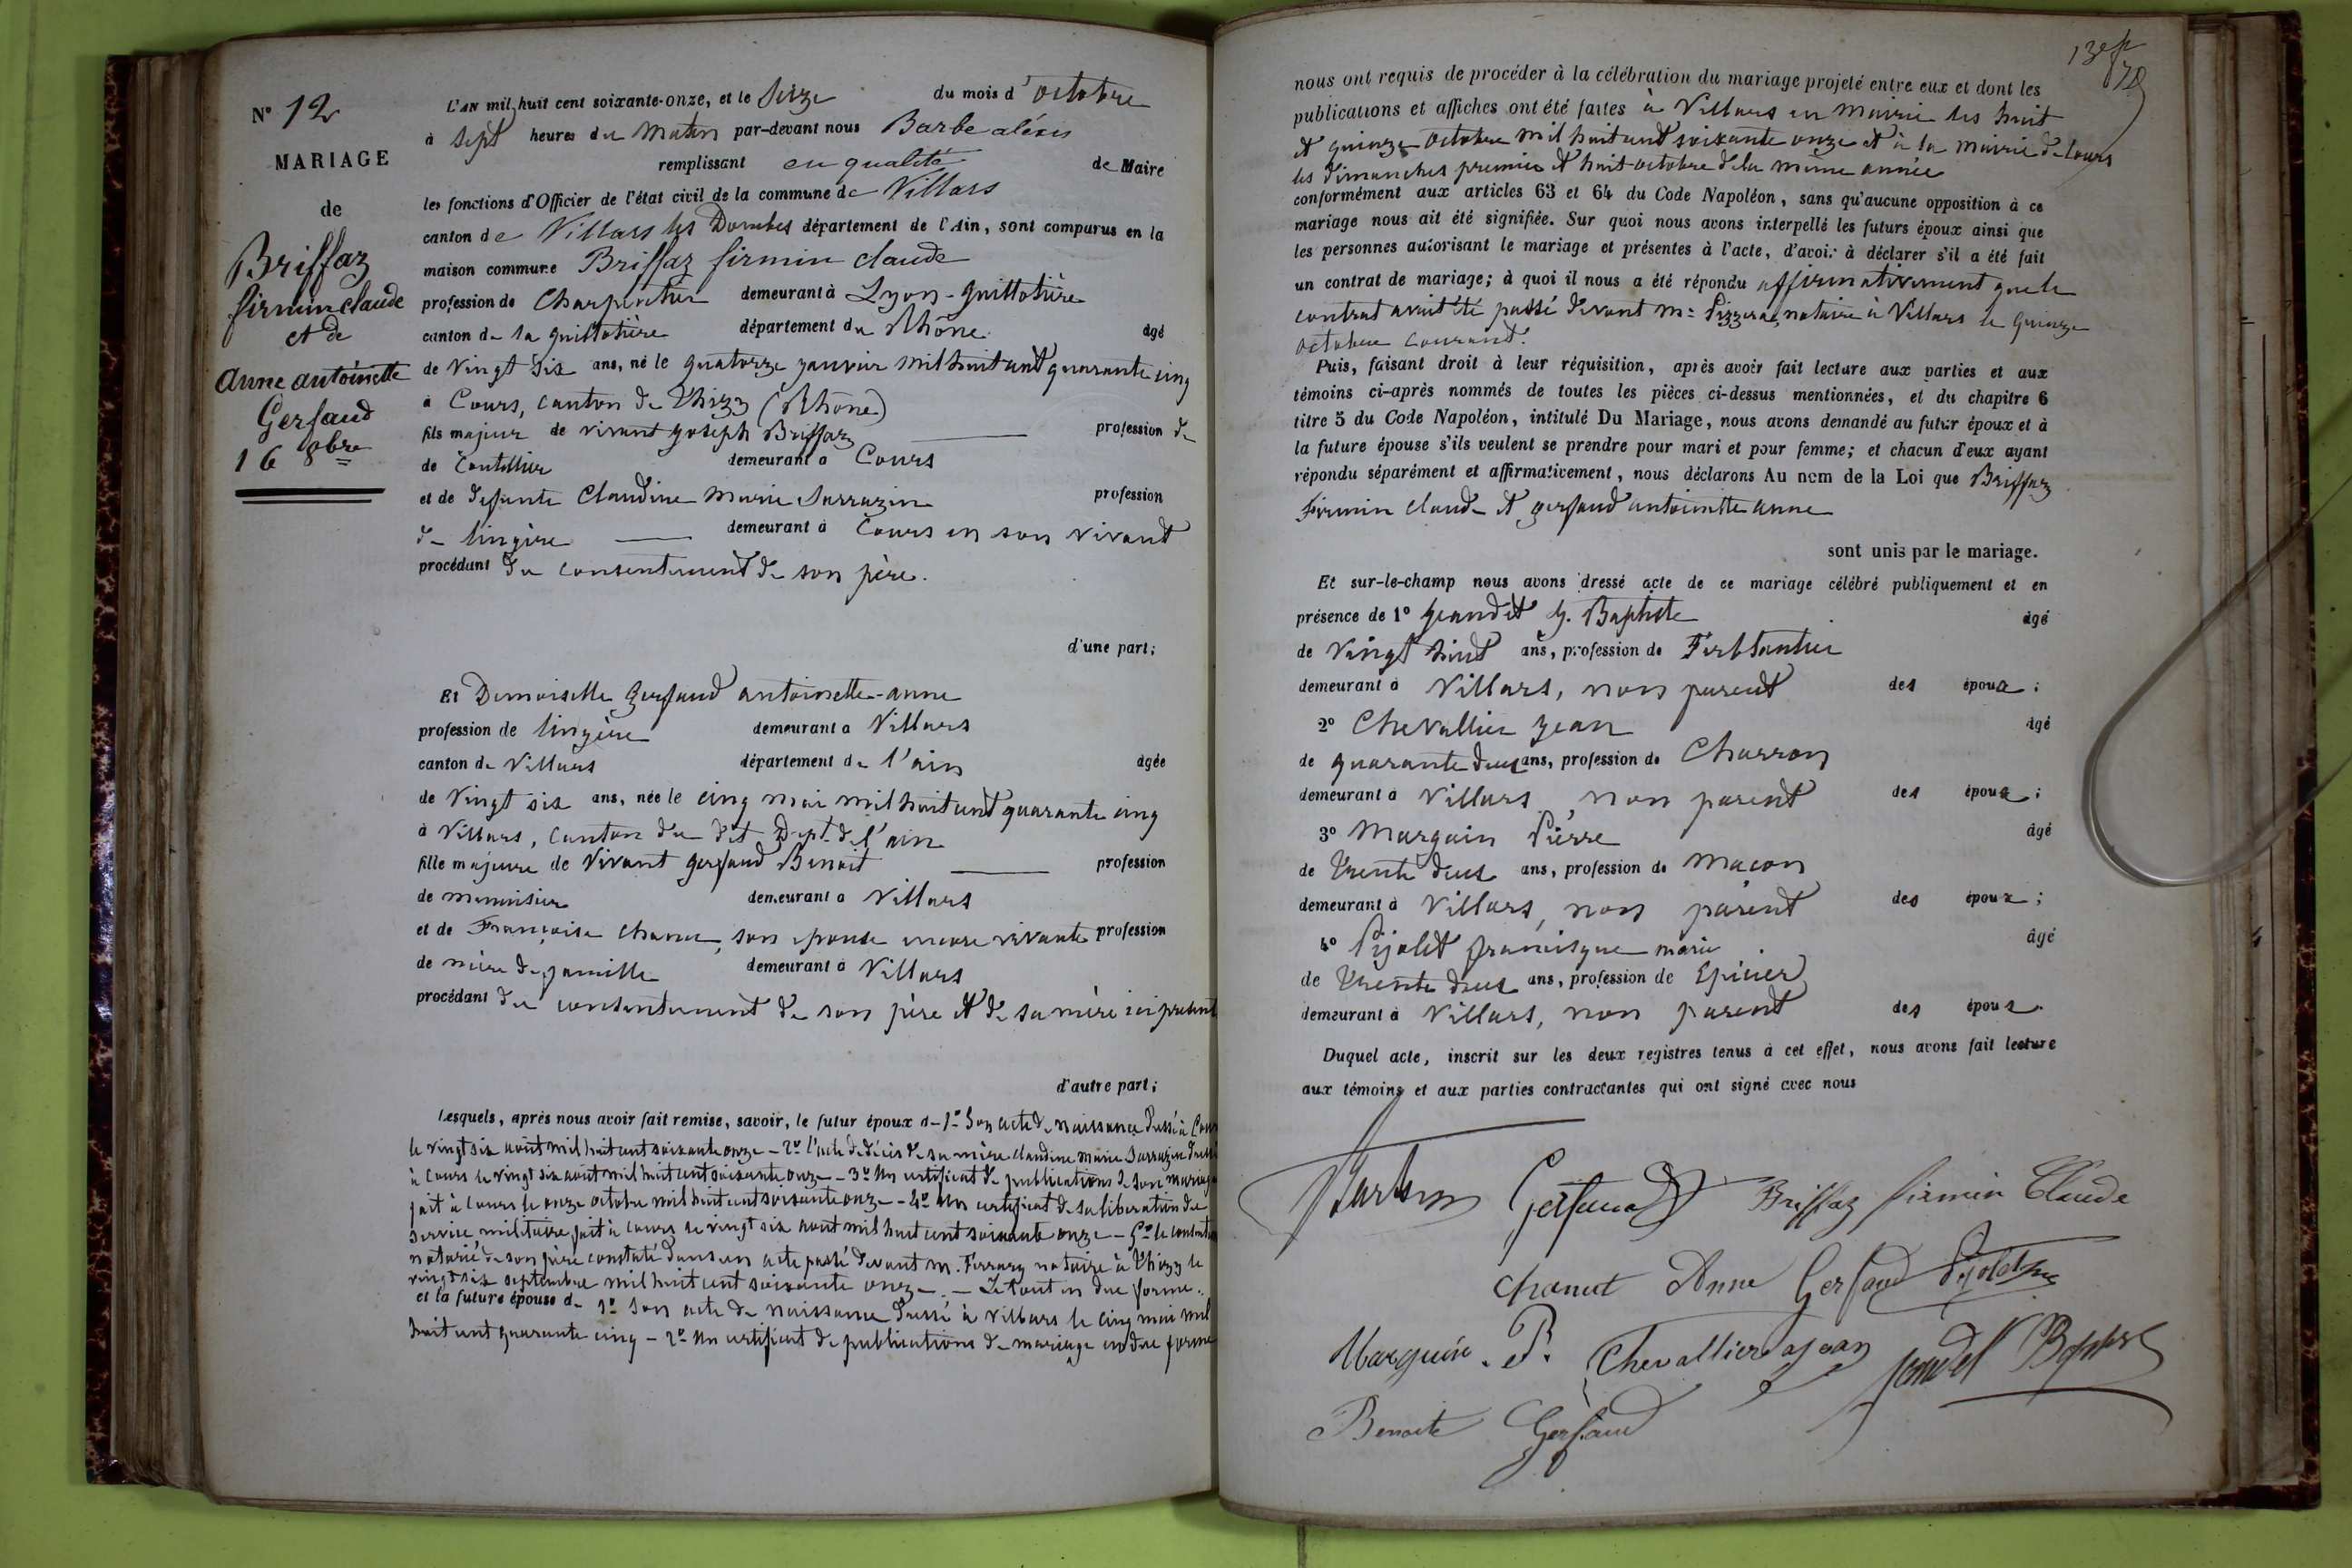 N° 12
MARIAGE
de
Briffaz
firmin claude
et de
Anne antoinette
Gerfaud
16 8bre
L'AN mil huit cent soixante-onze, et le Seize du mois d'octobre
à sept heures du matin par-devant nous Barbe aléxis
remplissant en qualité de Maire
les fonctions d'Officier de l'état civil de la commune de Villars
canton de Villars les Dombes département de l'Ain, sont comparus en la
maison commune Briffaz firmin claude
profession de Charpentier demeurant à Lyon-Guillotière
canton de la guillotière département du Rhône âgé
de Vingt six ans, né le quatorze janvier mil huit cent quarante cinq
à Cours, canton de Thizy (Rhône)
fils majeur de vivant joseph Briffaz profession de
de demeurant à Cours
et de defunte Claudine Marie Sarrazin profession
de lingère demeurant à Cours en son vivant
procédant du consentement de son père.
d'une part;
Et Demoiselle Gerfaud antoinette-anne
profession de lingère demeurant à Villars
canton de Villars département de l'ain âgée
de Vingt six ans, née le cinq mai mil huit cent quarante cinq
à Villars, canton du dit Dept de l'ain
fille majeure de Vivant gerfaud Benoit profession
de menuisier demeurant à Villars
et de Françoise Chanut, son epouse encore vivante profession
de mère de famille demeurant à Villars
procédant du consentement de son père et de sa mère ici présent
d'autre part;
Lesquels, après nous avoir fait remise, savoir, le futur époux de 1° Son acte de naissance Dressé à Cours
le vingt six août mil huit cent soixante onze - 2° l'acte de décès de sa mère claudine marie Sarrazin dressé
à Cours le vingt six août mil huit cent soixante onze - 3° Un certificat de publications de son mariage
fait à Cours le onze octobre mil huit cent soixante onze - 4° Un certificat de sa liberation du
service militaire fait à Cours le vingt six août mil huit cent soixante onze - 5° le consent
notarié de son père constaté dans un acte passé devant m. Ferrary notaire à Thizy le
vingt six septembre mil huit cent soixante onze. - Le tout en due forme.
et la future épouse de 1° Son acte de naissance Dressé à Villars le cinq mai mil
huit cent quarante cinq - 2° Un certificat de publications de mariage en due forme
nous ont requis de procéder à la célébration du mariage projeté entre eux et dont les
publications et affiches ont été faites à Villars en Mairie les huit
et quinze octobre mil huit cent soixante onze et à la mairie de Cours
les dimanches premier et huit octobre de la même année
conformément aux articles 63 et 64 du Code Napoléon, sans qu'aucune opposition à ce
mariage nous ait été signifiée. Sur quoi nous avons interpellé les futurs époux ainsi que
les personnes autorisant le mariage et présentes à l'acte, d'avoir à déclarer s'il a été fait
un contrat de mariage; à quoi il nous a été répondu affirmativement que le
contrat avait été passé devant me Pizzera, notaire à Villars le quinze
octobre courant.
Puis, faisant droit à leur réquisition, après avoir fait lecture aux parties et aux
témoins ci-après nommés de toutes les pièces ci-dessus mentionnées, et du chapitre 6
titre 5 du Code Napoléon, intitulé Du Mariage, nous avons demandé au futur époux et à
la future épouse s'ils veulent se prendre pour mari et pour femme; et chacun d'eux ayant
répondu séparément et affirmativement, nous déclarons Au nom de la Loi que Briffaz
Firmin claude et gerfaud antoinette anne
sont unis par le mariage.
Et sur-le-champ nous avons dressé acte de ce mariage célébré publiquement et en
présence de 1° Jeandet J. Baptiste âgé
de Vingt huit ans, profession de Ferblantier
demeurant à Villars, non parent des époux;
2° Chevallier Jean âgé
de quarante deux ans, profession de Charron
demeurant à Villars, non parent des époux;
3° Marguin Pierre âgé
de Trente deux ans, profession de Maçon
demeurant à Villars, non parent des époux;
4° Pijolet francisque marie âgé
de Trente deux ans, profession de Epicier
demeurant à Villars, non parent des époux.
Duquel acte, inscrit sur les deux registres tenus à cet effet, nous avons fait lecture
aux témoins et aux parties contractantes qui ont signé avec nous
Gerfaud Briffaz firmin Claude
Chanut Anne Gerfaud Pijolet
Marguin. P. Chevallier Jean
Benoite Gerfaud